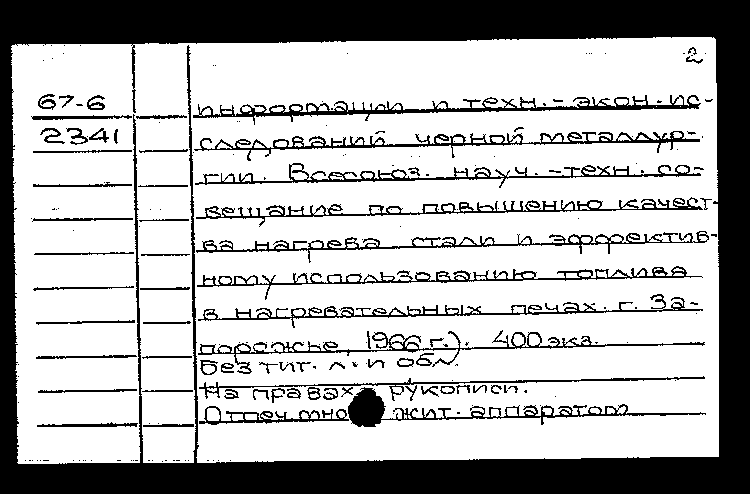 2
67-6 информации и техн.-экон.ис-
2341 следований черной металлур-
гии. Всесоюз. науч.-техн. со-
вещание по повышению качест-
ва нагрева стали и эффектив-
ному использованию топлива
в нагревательных печах. г. За-
порожье, 1966 г.). 400 экз.
Без тит. л. и обл.
На правах рукописи.
Отпеч. мно жит. аппаратом